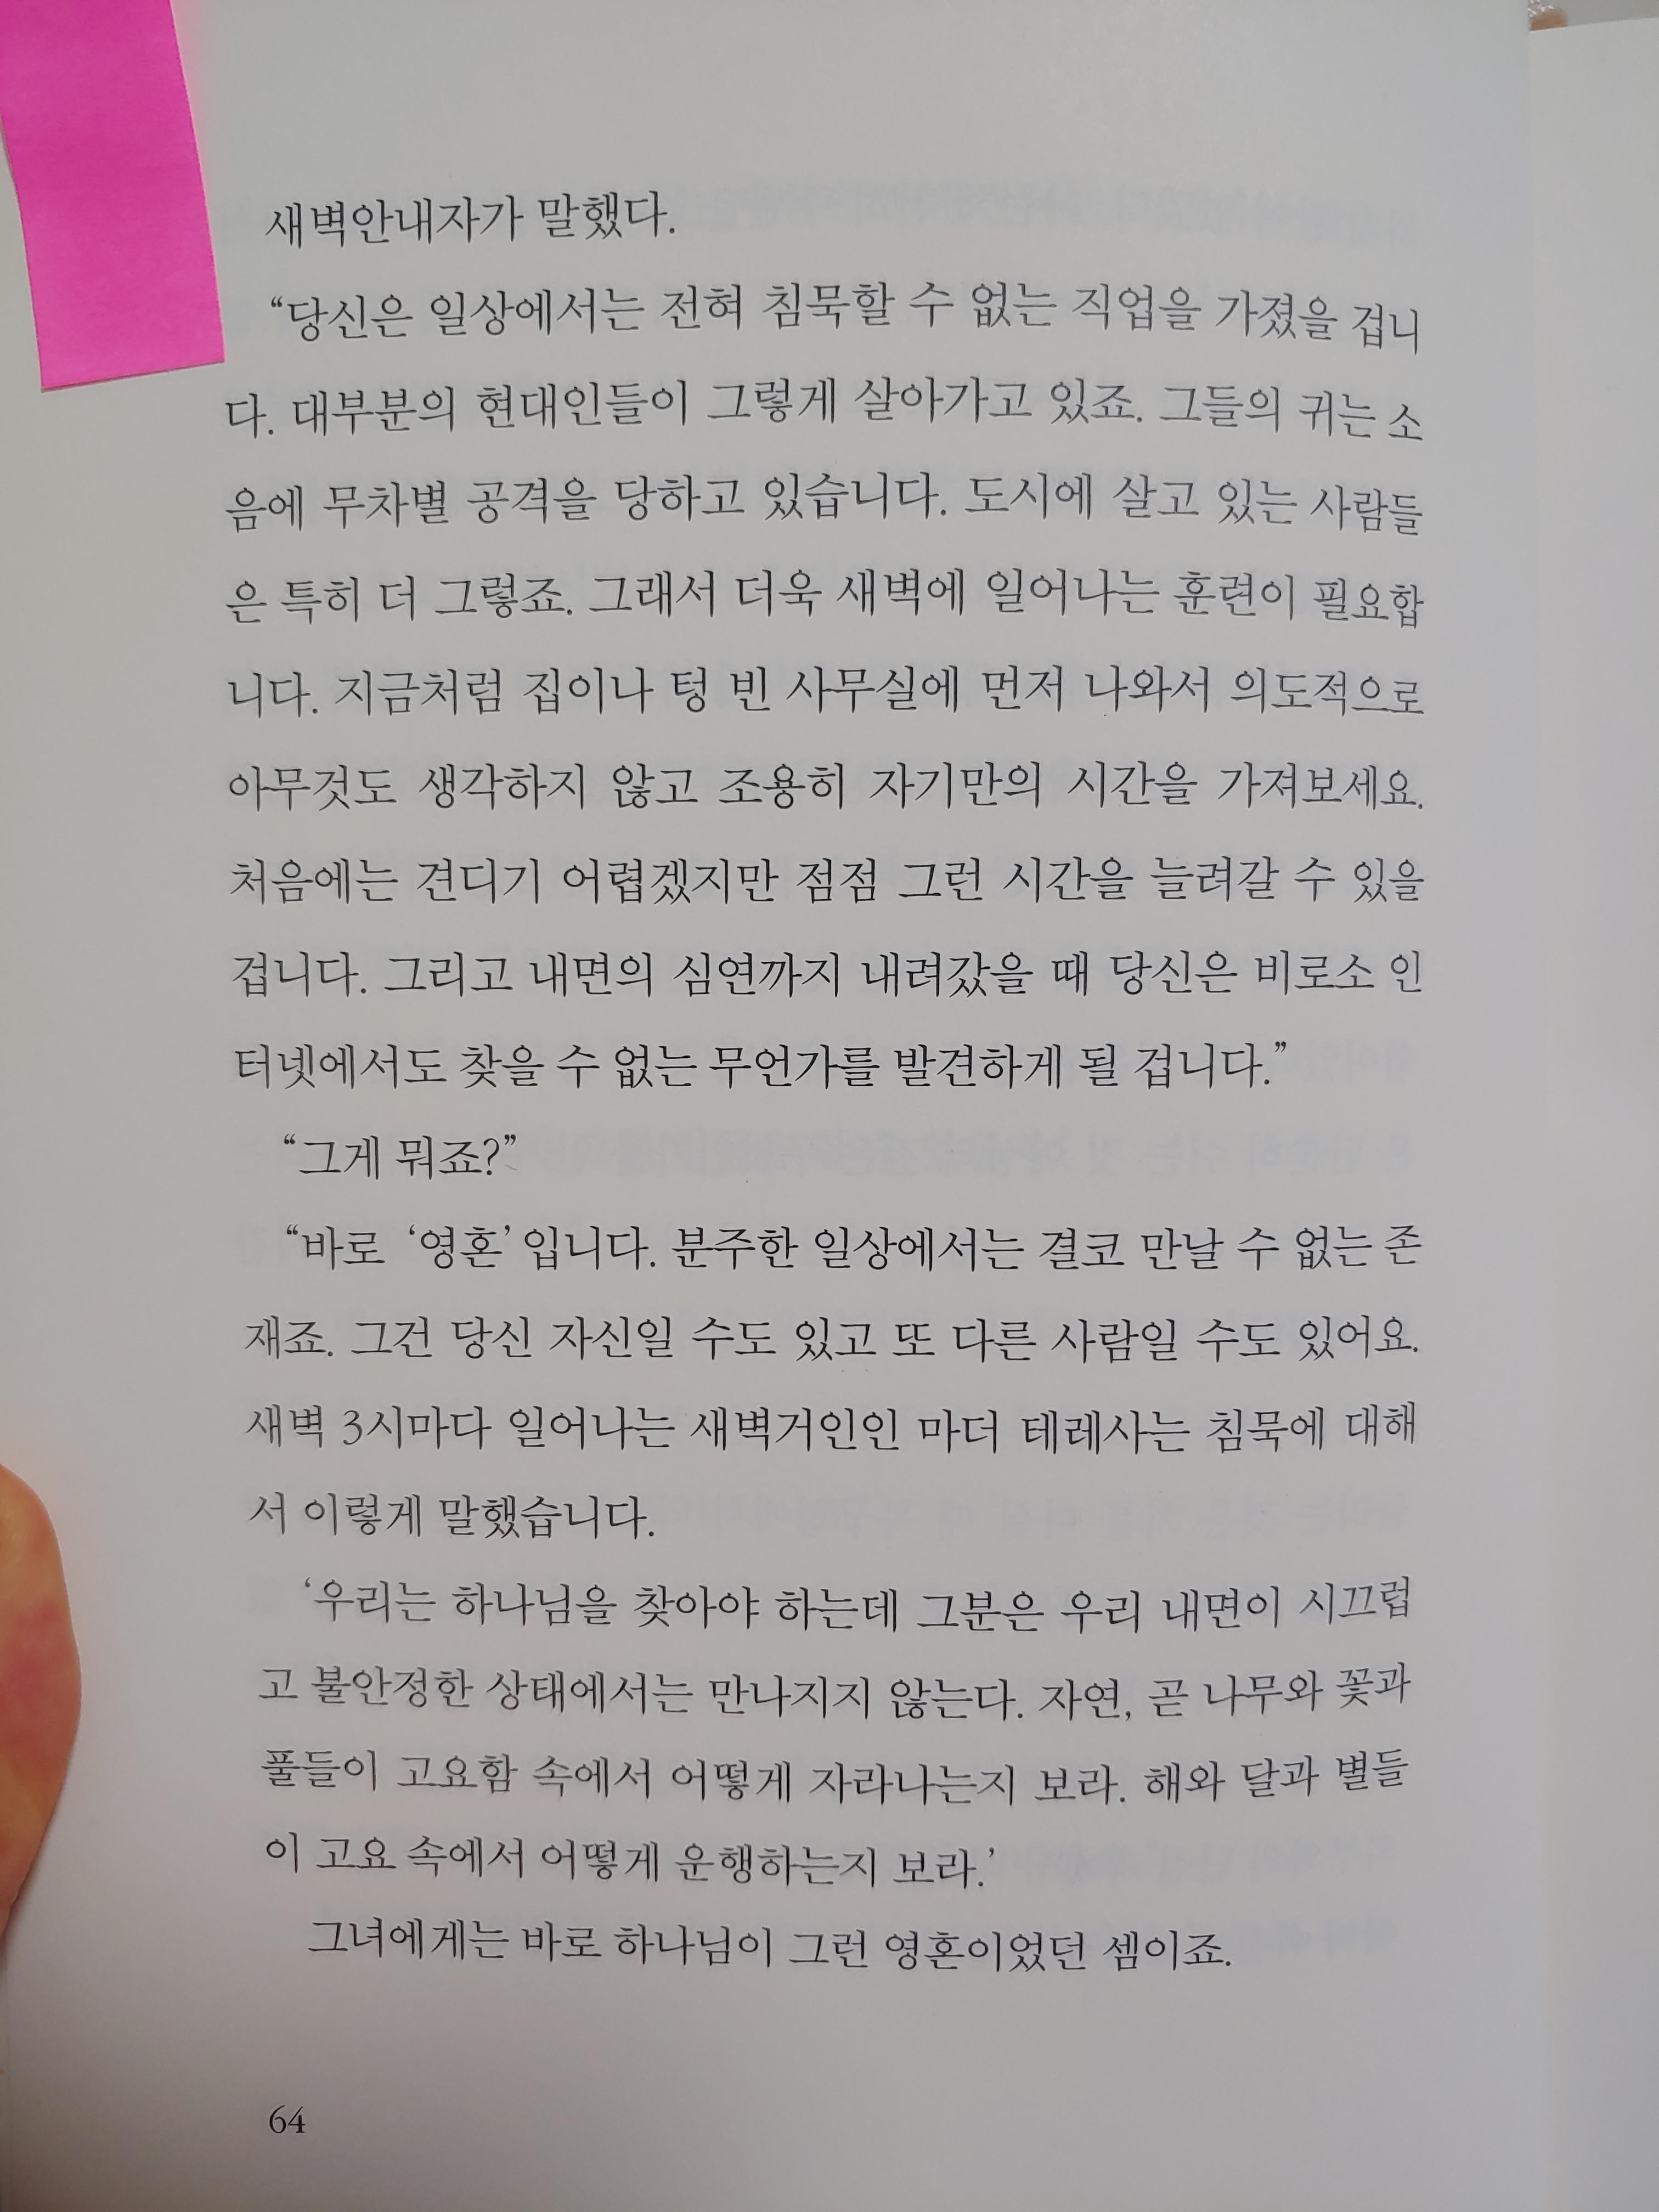 새벽안내자가 말했다.
“당신은 일상에서는 전혀 침묵할 수 없는 직업을 가졌을 겁니
다. 대부분의 현대인들이 그렇게 살아가고 있죠. 그들의 귀는 소
음에 무차별 공격을 당하고 있습니다. 도시에 살고 있는 사람들
은 특히 더 그렇죠. 그래서 더욱 새벽에 일어나는 훈련이 필요합
니다. 지금처럼 집이나 텅 빈 사무실에 먼저 나와서 의도적으로
아무것도 생각하지 않고 조용히 자기만의 시간을 가져보세요.
처음에는 견디기 어렵겠지만 점점 그런 시간을 늘려갈 수 있을
겁니다. 그리고 내면의 심연까지 내려갔을 때 당신은 비로소 인
터넷에서도 찾을 수 없는 무언가를 발견하게 될 겁니다.”
“그게 뭐죠?”
“바로 ‘영혼’입니다. 분주한 일상에서는 결코 만날 수 없는 존
재죠. 그건 당신 자신일 수도 있고 또 다른 사람일 수도 있어요.
새벽 3시마다 일어나는 새벽거인인 마더 테레사는 침묵에 대해
서 이렇게 말했습니다.
‘우리는 하나님을 찾아야 하는데 그분은 우리 내면이 시끄럽
고 불안정한 상태에서는 만나지지 않는다. 자연, 곧 나무와 꽃과
풀들이 고요함 속에서 어떻게 자라나는지 보라. 해와 달과 별들
이 고요 속에서 어떻게 운행하는지 보라.’
그녀에게는 바로 하나님이 그런 영혼이었던 셈이죠.
64